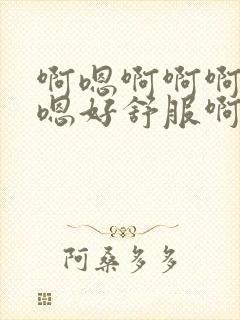 啊嗯啊啊啊
嗯好舒服啊
阿桑多多